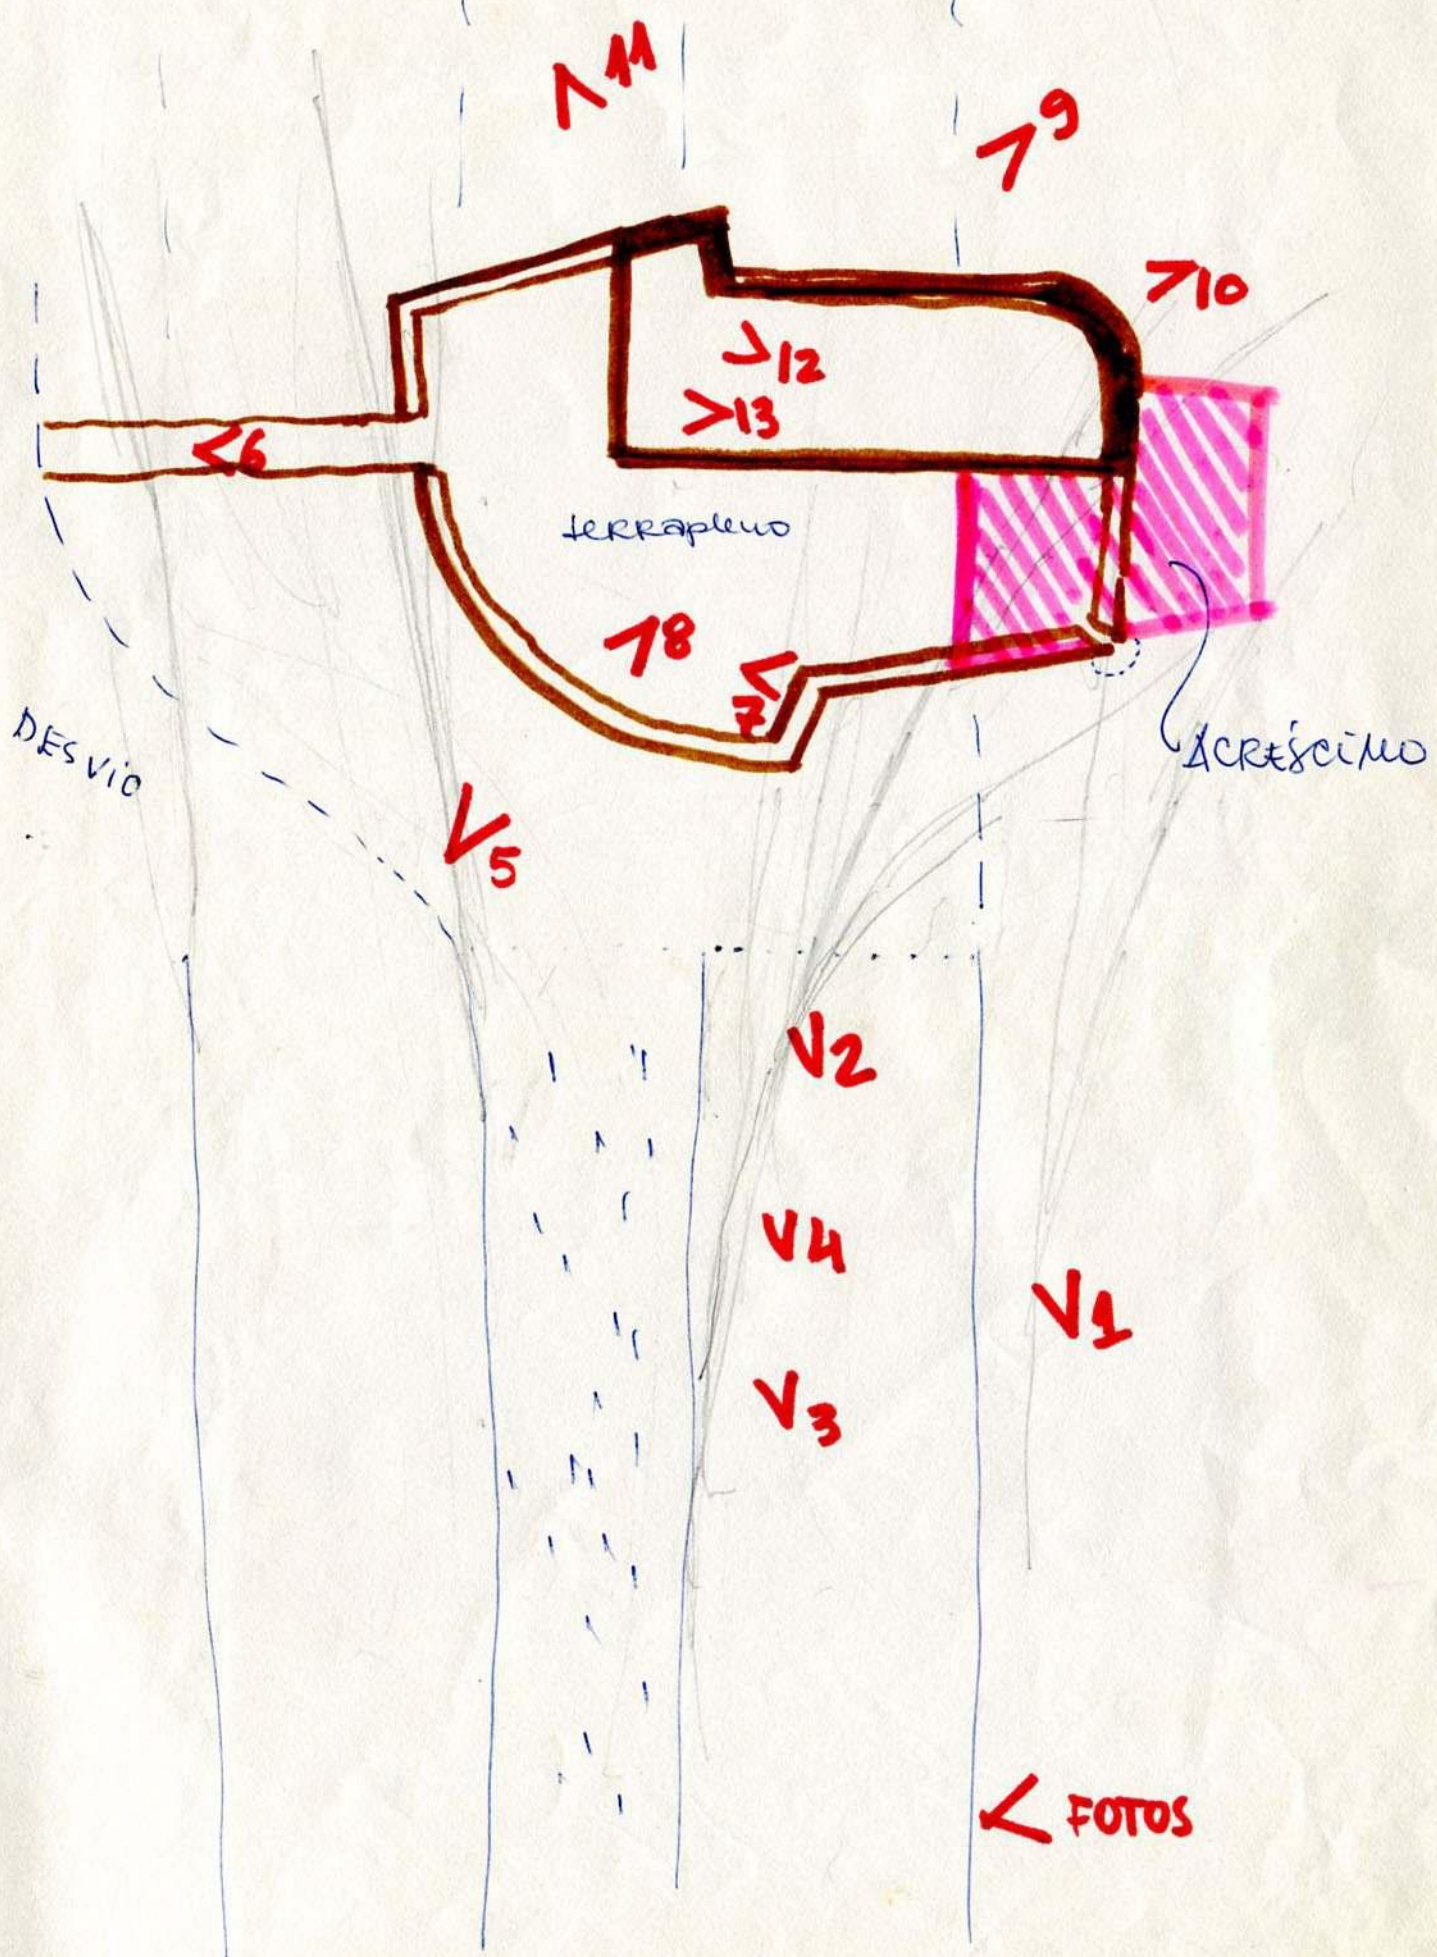 Λ 11
9
>10
>12
>13
<6
terrapleno
8
<
7
DESVIO
ACRÉSCIMO
V5
V2
V4
V1
V3
< FOTOS